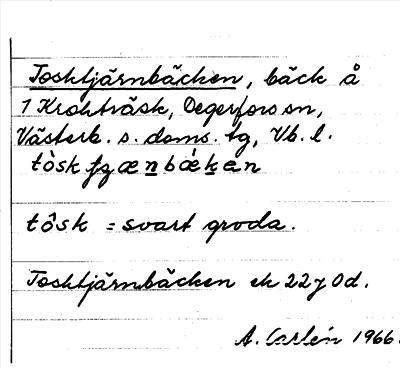 Tosktjärnbäcken, bäck å
1 Krokträsk, Degerfors sn,
Västerb. s. doms. tg, Vb. l.
tòsk ʃɟænbækan
tòsk = svart groda.
Tosktjärnbäcken ek 22 7 0d.
A. Carlén 1966.